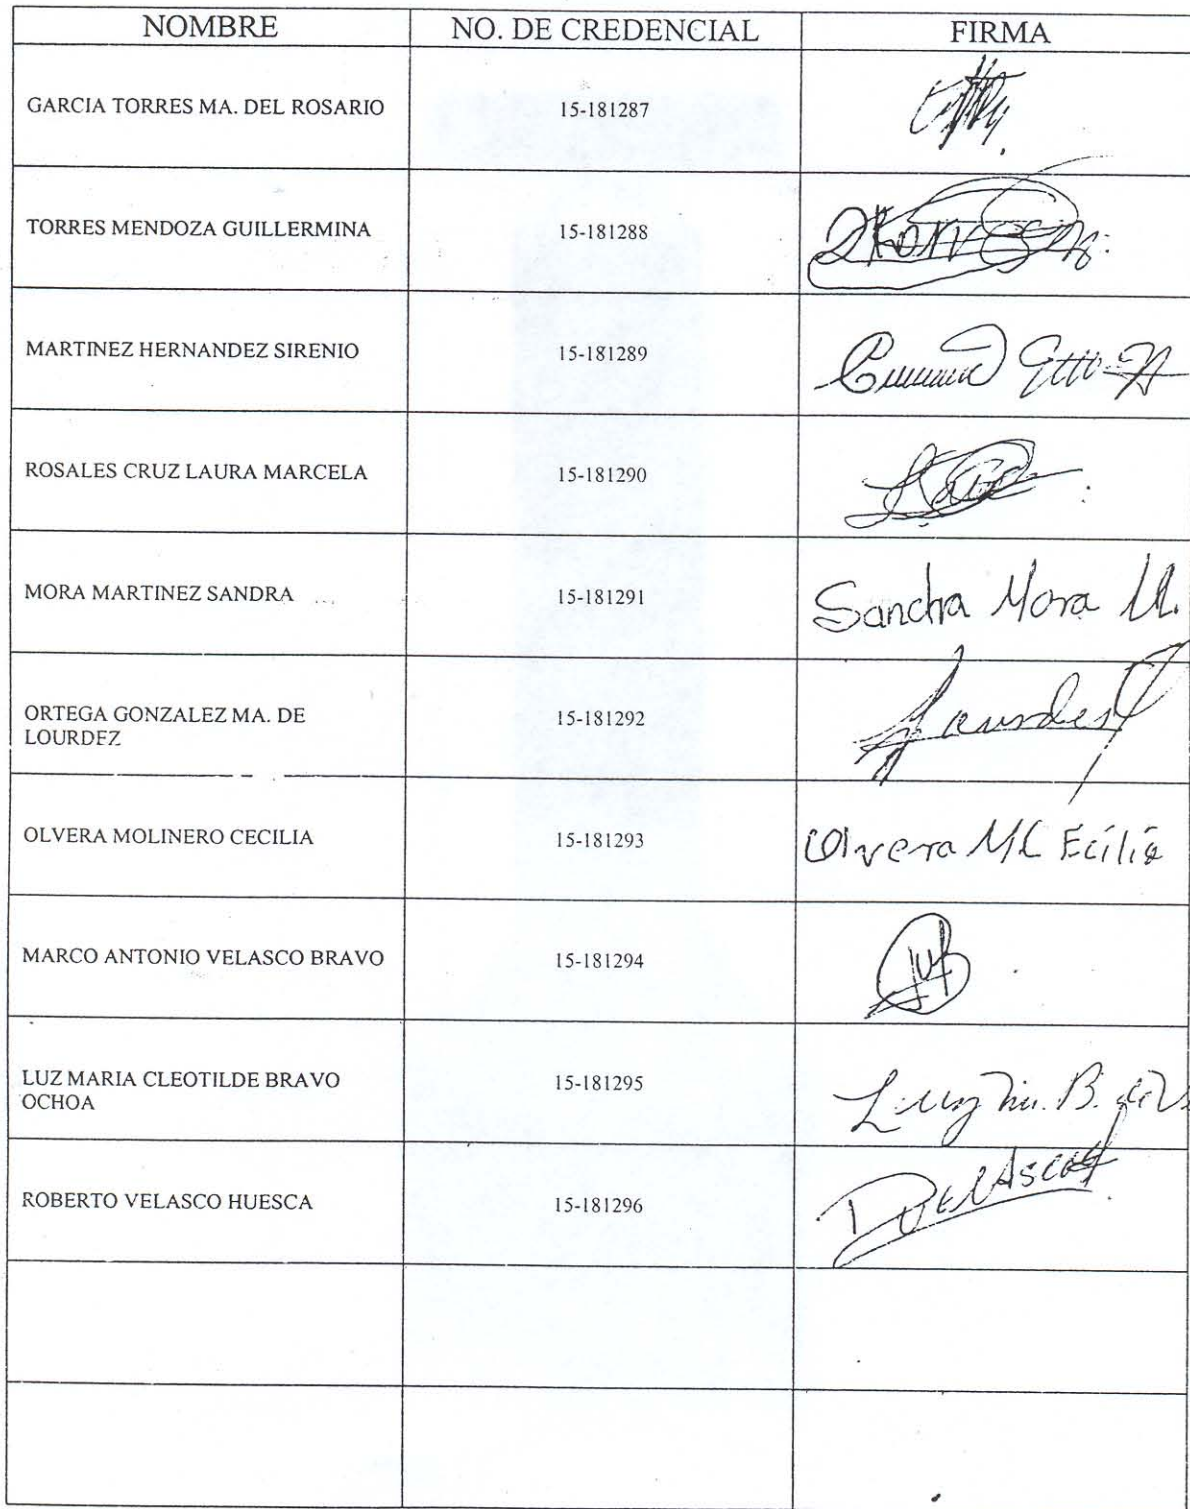 NOMBRE NO. DE CREDENCIAL FIRMA
GARCIA TORRES MA. DEL ROSARIO 15-181287
TORRES MENDOZA GUILLERMINA 15-181288
MARTINEZ HERNANDEZ SIRENIO 15-181289
ROSALES CRUZ LAURA MARCELA 15-181290
MORA MARTINEZ SANDRA 15-181291 Sandra Mora M.
ORTEGA GONZALEZ MA. DE
LOURDEZ 15-181292 Lourdes
OLVERA MOLINERO CECILIA 15-181293 Olvera M C Ecilia
MARCO ANTONIO VELASCO BRAVO 15-181294
LUZ MARIA CLEOTILDE BRAVO
OCHOA 15-181295 Luz Ma. B. de V
ROBERTO VELASCO HUESCA 15-181296